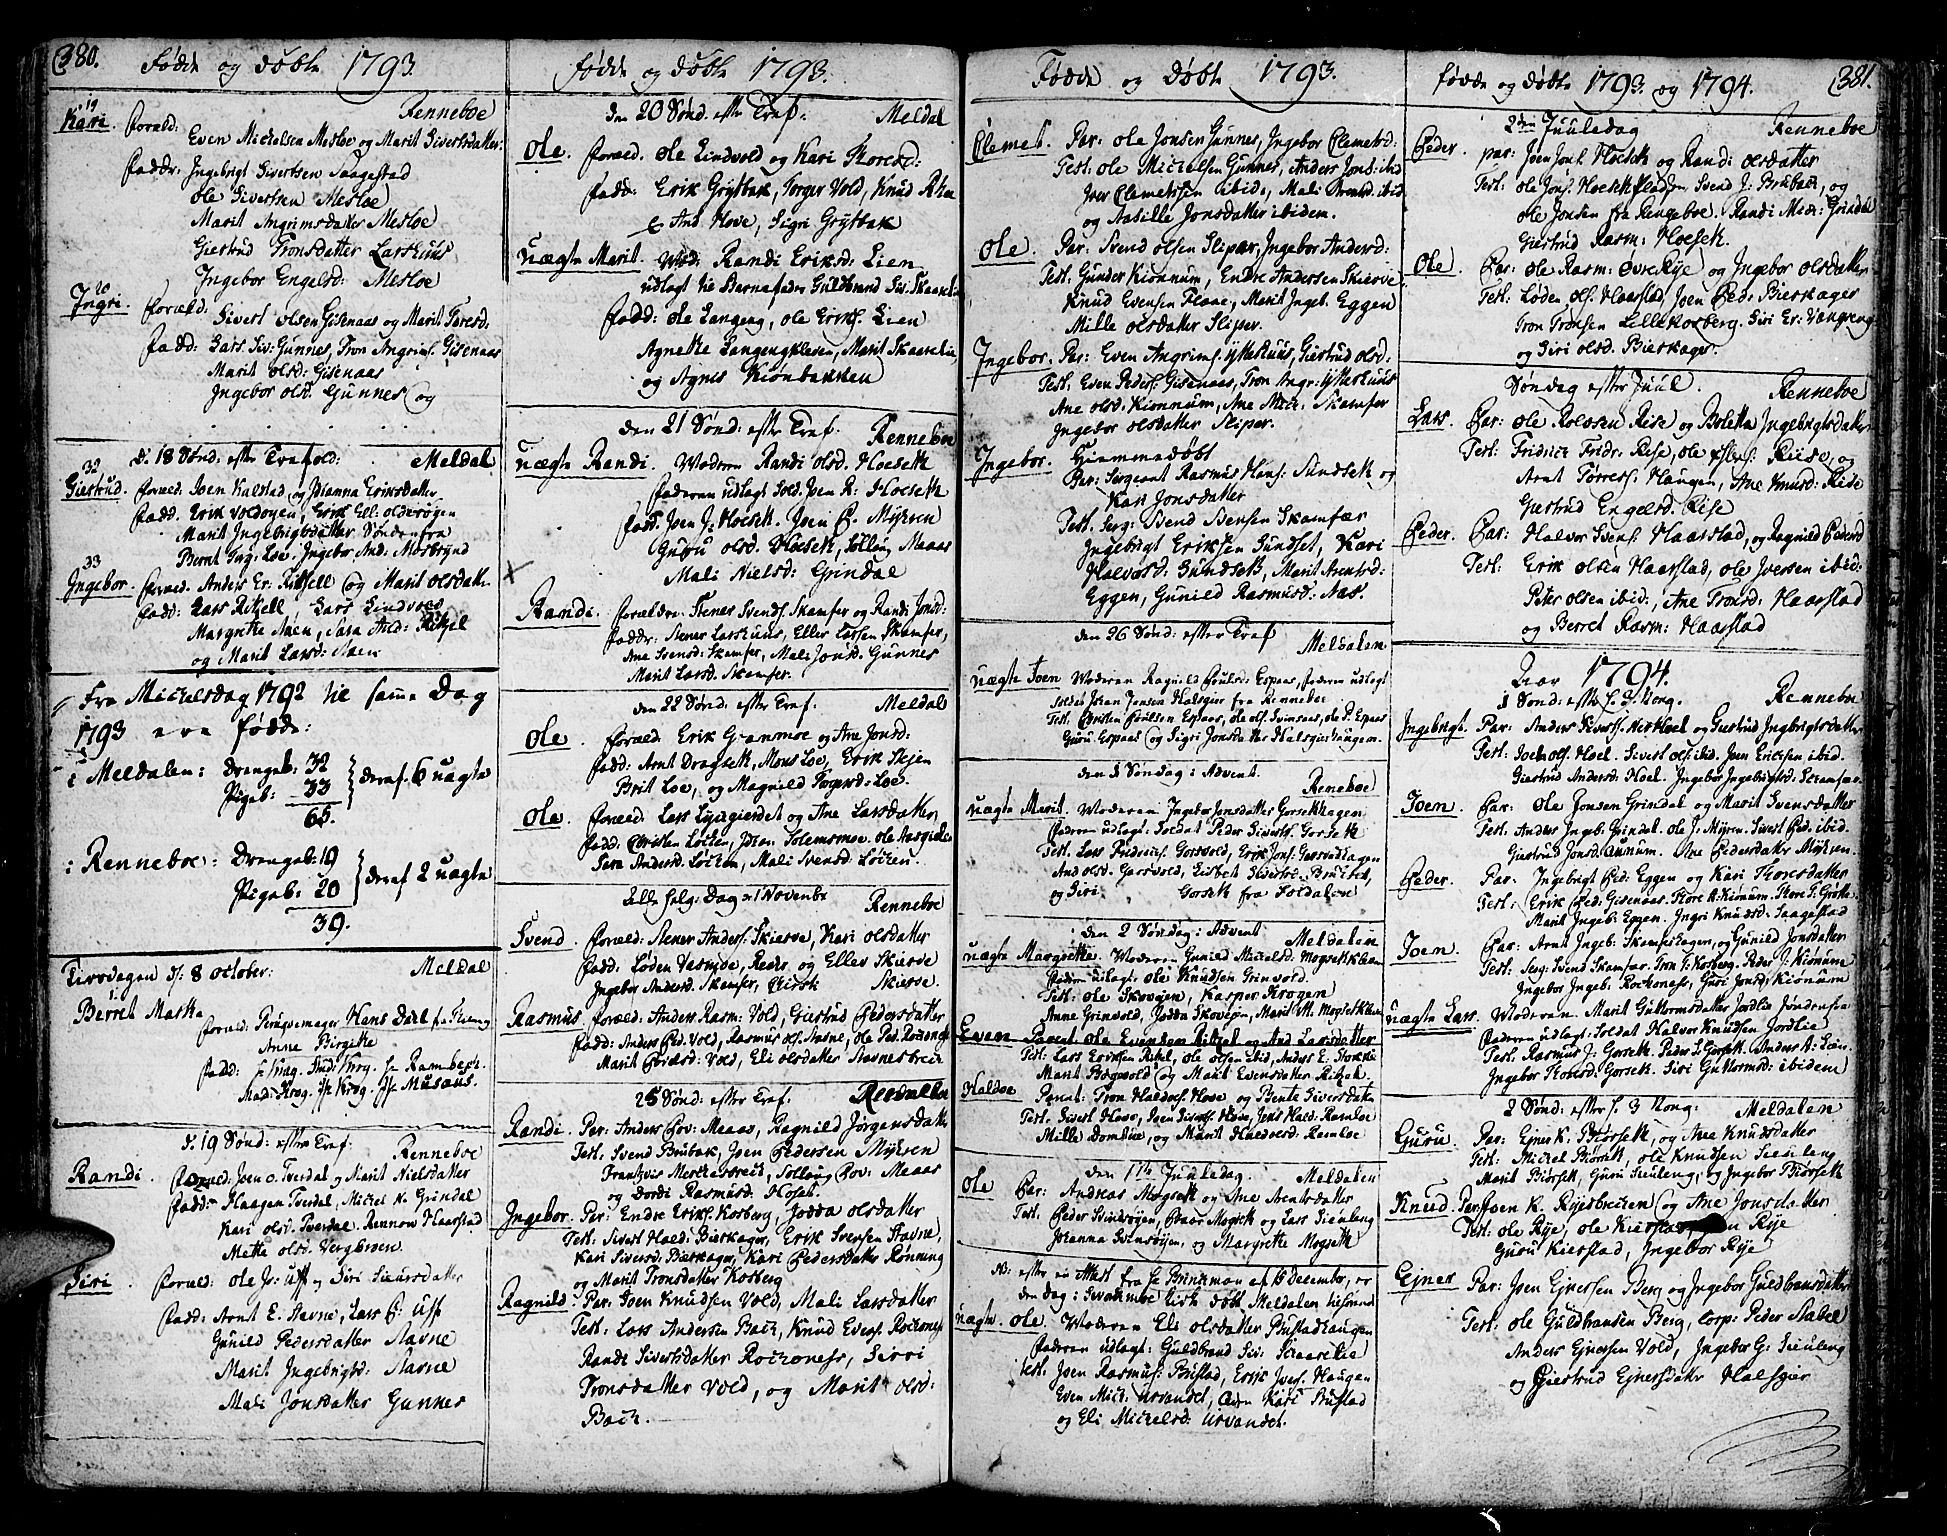 380. Fødde og døbte 1793.
19 Renneboe
Kari. Foræld:
Even Mickelsen Mesloe og Marit Sivertsdatter:
Faddr: Ingebrigt Sivertsen Saagestad
Ole Sivertsen Mesloe
Marit Angrimsdatter Mesloe
Giertrud Tronsdatter Larshuus
Ingebor Engelsd: Mesloe
20
Ingri. Foræld: Sivert Olsen Gisenaas og Marit Toresd:
Fadd: Lars Siv: Gunnes, Tron Angrims. Gisenaas
Marit olsd: Gisenaas
Ingebor olsd. Gunnes og
D. 18 Sønd: efter Trefold: Meldal
32
Giertrud. Foræld: Joen Kalstad og Johanna Eriksdatter
Fadd. Erik Voldøyen, Erik El: olderøyen
Marit Ingebrigtsdatter Søndenfra
Berret Ing: Loe, Ingebor And. Mosbrynd
33
Ingebor. Foræld. Anders Er: Ritzell og Marit olsdatt.
Fadd: Lars Ritzell, Lars Lindvold
Margrette Aaen, Sara Arld: Ritzel
og Marit Larsd: Aaen
Fra Michelsdag 1792 til samme Dag
1793 ere fødde:
i Meldalen: Drengeb: 32
Pigeb: 33 deraf 6 uægte
65.
i Renneboe: Drengeb: 19
Pigeb: 20 deraf 2 uægte
39.
Tirsdagen d: 8 October: Meldal
Berret Marka
Foræld: Perugvemager Hans Dæl fra
Anne Birgitte
D. 19 Sønd: efter Tref: Renneboe
Randi. Foræld: Joen o. Tverdal og Marit Nielsdatter
Fadd: Haagen Tverdal, Mickel K. Grindal
Kari olsd. Tverdal. Rennow Haarstad
Mette olsd. Vergbroen
Siri. Foræld: Ole Js: Uff og Siri Siursdatter
Fadd: Arnt E. Stavne, Lars E: Uff
Gunild Pedersdatter Stavne
Marit Ingebrigtsd: Stavne
Mali Jonsdatter Gunnes
Fødde og døbte 1793.
den 20 Sønd: efter Tref: Meldal
Ole. Foræld. Ole Lindvold og Kari Toresd:
Fadd: Erik Grytbak, Torger Vold, Knud Rhen
And Hove, Sigri Grytbak
uægte Marit. Mod: Randi Eriksd: Lien
udlagt til Barnefader Guldbrand Siv: Skaaselie
Fadd: Ole Langeng, ole Eriks. Lien
Agnette Langengplesen, Marit Skaaselie
og Agnes Kiønbakken
den 21 Sønd: efter Tref. Renneboe
uægte Randi. Moderen Randi olsd. Hoesek
Faderen udlagt Sold. Joen R: Hoesek
Fadd Joen J. Hoesek. Joen P. Myhren
Guru olsd. Hoesek, Solløv Maas
Mali Nielsd: Grindal
Randi. Forældre: Stener Svends. Skamfer og Randi Jonsd:
Faddr: Stener Larshuus, Eller Larsen Skamfer,
Ane Svensd: Skamfer, Mali Jonsd. Gunnes
Marit Larsd. Skamfer.
den 22 Sønd: efter Tref. Meldal
Ole. Foræld. Erik Granmoe og Ane Jonsd:
Fadd: Arnt Dragsek, Mons Loe, Erik Skjen
Brit Loe, og Magnild Torgersd: Loe.
Ole. Foræld: Lars Lyngierdet og Ane Larsdatter
Fadd. Christen Løkken, Johan Solemsmoe, Ole
Sara Andersd. Løkken, Mali Svensd: Løkken.
Alle helg: Dag 1 Novembr Renneboe
Svend. Foræld: Stener Anders. Skierve, Kari olsdatter
Fadd: Løden Vasmoe, Reder og Eller Skierve
Ingebor Andersd. Skamfer, Kirsti Skierve.
Rasmus. Foræld: Anders Rasm: Vold, Giertrud Pedersdatter
Fadd: Anders Ped. Vold, Rasmus ols. Stavne, ole Ped.
Marit Svendsd: Vold, Eli olsdatter Stavnesbrek
25 Sønd: efter Tref. Renneboe
Randi. Par: Anders Pov: Maas, Ragnild Jørgensdatt.
Test: Svend Brubak, Joen Pedersen Myhren
Solløv Pov: Maas
og Dordi Rasmusd. Hosek.
Ingebor. Par: Endre Eriks. Korsberg, Jodda olsdatter
Test: Sivert Hald: Bierskager, Erik Svensen Stavne,
Kari Siversd: Bierskager, Kari Pedersdatter Rønning
og Marit Tronsdatter Korsberg
Ragnild. Par: Joen Knudsen Vold, Mali Larsdatter
Test: Lars Andersen Bach, Knud Evens. Rockones
Randi Sivertsdatter Rockoness, Sirri
Tronsdatter Vold, og Marit olsd:
Bach.
Fødde og Døbte 1793.
Clemet. Par: Ole Jonsen Gunnes, Ingebor Clemetsd:
Test: Ole Mickelsen Gunnes, Anders Jons. ibid
Iver Clemetsen ibid, Mali Arentsd. ibid
og Aasille Jonsdatter ibidem.
Ole. Par: Svend olsen Sliper, Ingebor Andersd:
Test: Gunder Kionnum, Endre Andersen Skierve
Knud Evensen Flaae, Marit Ingeb. Eggen
Mille olsdatter Sliper.
Ingebor. Par: Even Angrims. ytterhuus, Giertrud olsd:
Test: Even Peders: Gisenaas, Tron Angr: ytterhuus
Ane olsd: Kionnum, Ane Mick: Skamfer
Ingebor olsdatter Sliper.
Ingebor. Hiemmedøbt
Par: Sergeant Rasmus Hans: Sundsek og
Kari Jonsdatter
Test: Serg: Svend Svensen Skamfær
Ingebrigt Eriksen Sundset, Kari
Halvorsd: Sundsek, Marit Arentsd:
Eggen, Gunild Rasmusd: Aas.
den 26 Sønd: efter Tref Meldalen.
uægte Joen Moderen Ragnild Poulsd: Espaas, Faderen udlagt
Soldat Johan Jansen Halsgier fra Renneboe
Test. Christen Poulsen Espaas, ole ols. Svinsaas, ole P. Espaas
Guru Espaas og Sigri Jonsdatter Halsgierhaugen.
den 1 Søndag i Advent. Renneboe
uægte Marit. Moderen Ingebor Jonsdatter Gorsethagen
Faderen udlagt Soldat Peder Siverts. Gorsek
Test. Lars Fridrics. Gorsvold, Erik Jons. Gorsethagen
And olsd. Garsvold, Lisbet Siversd: Brubek,
og Siri Gorsek fra Soldalen
den 2 Søndag i Advent. Meldalen
uægte Margrette. Moderen Gunild Mickelsd. Mogsetkleen
Faderen udlagt. Ole Knudsen Grinvold
Test: Ole Skovøyen, Kasper Krogen
Anne Grinvold, Jodda Skovøyen, Marit M. Mogsetkleen
Even Parent Ole Evensen Ritzel og And Larsdatter
Test: Lars Eriksen Rikel, ole olsen ibid, Anders E:
Marit Bægvold og Marit Evensdatter Ritzek.
Haldoe Parent: Tron Haldors. Hove og Bente Siversdater
Test: Sivert Hove, Joen Sivers. Hove, Jens Hald: Ramloe
Mille Domtue, og Marit Haldorsd: Ramloe
den 1ste Juuledag. Meldalen
Ole Par: Andreas Mogsek og Ane Arentsdatter
Test: Peder Svinsøyen, Povor Mogsek og Lars Sieuleng
Johanna Svinsøyen, og Margrette Mogsek
NB: efter en Attest fra Hr Brinkman af 15 December, er
den dag i Svorkmoe Kirk døbt Meldalen tilhørende
uægte. Ole. Moderen Eli olsdatter Prustadhaugen
Faderen udlagt: Guldbrand Siv: Skaaselie
Test: Joen Rasmus: Prustad, Erik Ivers. Haugen
Even Mick: Urvandet, Kari Prustad
og Eli Mickelsd: Urvandet.
Fødde og døbte 1793 og 1794. 381.
2den Juuledag Renneboe
Peder. Par: Joen Jons. Hoesek og Randi Olsdatter
Test: Ole Jons. Hoesekpladsen, Svend J. Brubak, og
Ole Jonsen fra Rengeboe. Randi Mick: Grindal
Giertrud Rasm: Hoesek.
Ole. Par: Ole Rasm: øvre Rye og Ingebor olsdatter
Test: Løden ols. Haarstad, Joen Ped: Bierskager
Tron Tronsen Lille Korsberg. Siri Er: Vangreng
og Siri olsd. Bierskager.
Søndag efter Juul. Renneboe
Lars. Par: Ole Rolvsen Rise og Boletta Ingebrigtsdatter
Test: Fridric Fridr. Rise, ole Rise, og
Arnt Tørress. Haugen, Ane Knudsd: Rise
Giertrud Engelsd. Rise
Peder. Par: Halvor Svens. Haarstad, og Ragnild Pedersd
Test: Erik olsen Haarstad, ole Iversen ibid:
Peter olsen ibid:, Ane Tronsd: Haarstad
og Berret Rasm: Haarstad
Aar 1794.
1 Sønd: efter H. 3 Kong. Renneboe
Ingebrigt. Par: Anders Siverts. Merkhoel og Giertrud Ingebrigtsdatter
Test: Joen ols. Hoel. Sivert ols. ibid. Joen Eriksen ibid.
Giertrud Andersd: Hoel. Ingebor Ingebrigtsd: Skamfær.
Joen. Par: Ole Jonsen Grindal og Marit Svensdatter
Test: Anders Ingeb: Grindal. ole J. Myren. Sivert Ped: ibid.
Giertrud Jonsd. Aunum. Ane Pedersdatter Myhren.
Peder. Par: Ingebrigt Ped: Eggen og Kari Thoresdatter
Test: Erik Ped: Gisenaas. Thore A. Kionum. Thore T. Grøtte
Marit Ingeb: Eggen. Ingri Knudsd: Saagestad
Joen. Par: Arnt Ingeb: Skamferhagen, og Gunild Jonsdatter
Test: Serg: Svend Skamfær. Tron T. Korsberg. Peder J. Kionum
Ingebor Ingeb: Rockoness. Guri Jonsd: Kionum
uægte Lars. Moderen. Marit Guttormsdatter Jordlie Søndenfra
Faderen udlagt: Soldat Halvor Knudsen Jordlie
Test: Rasmus J. Gorsek. Peder S. Gorsek. Anders A: Lien
Ingebor Thoresd: Gorsek. Siri Guttormsd: ibidem
2 Sønd: efter H. 3 Kong: Meldalen
Guru. Par: Ejner K. Biørsek, og Ane Knudsdatter
Test: Mickel Biørsek, Ole Knudsen Sieuleng
Marit Biørsek, Guru Sieuleng, og Ingebor Biørsek
Knud. Par: Joen K. Ryesbreiten og Ane Jonsdatter
Test: Ole Rye, ole Kierstad, Rye
Guru Kierstad, Ingebor Rye
Ejner Par: Joen Ejnersen Berg og Ingebor Guldbransdatter
Test: Ole Guldbransen Berg, Corp: Peder Stabel
Anders Ejnersen Vold, Ingebor G: Sieuleng
og Giertrud Ejnersdatter Halsgier